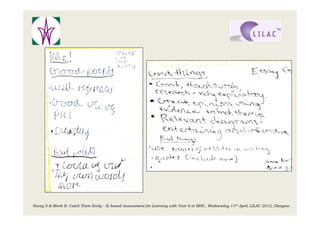 LILAC
Me!
Good points
• Well referenced
• Good use of
pics
• Detailed
Bad points
• Could of put
my own words
more
Good things. Essay
• Good, thorough
research - very explanatory
• Create opinions using
evidence to back them up
• Relevant diagrams -
entertaining and interactive
Bad things
• Use names of websites in writing
• quotes (include more)
Pavey S & Monk R. Catch Them Early – IL based Assessment for Learning with Year 8 at BIES , Wednesday 11th April, LILAC 2012, Glasgow